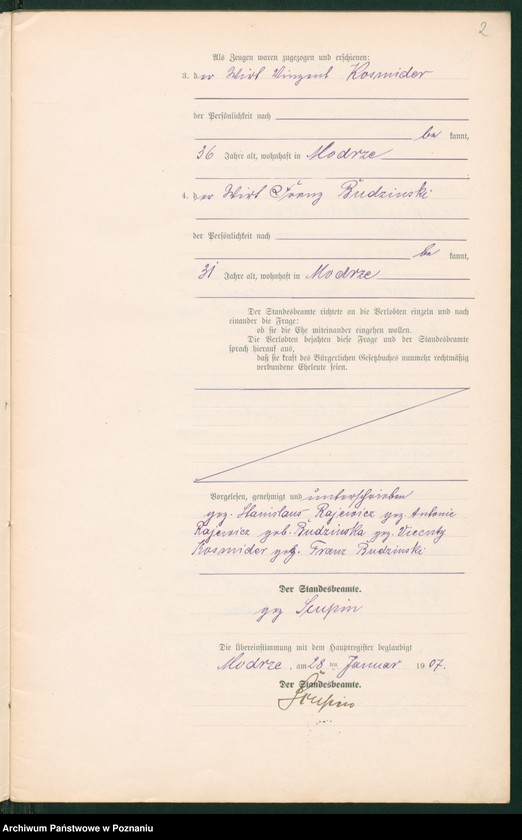 2
Als Zeugen waren zugezogen und erschienen:
3. der Wirt Vinzent Kosmider
der Persönlichkeit nach
be kannt,
36 Jahre alt, wohnhaft in Modrze
4. der Wirt Franz Budzinski
der Persönlichkeit nach
be kannt,
31 Jahre alt, wohnhaft in Modrze
Der Standesbeamte richtete an die Verlobten einzeln und nach
einander die Frage:
ob sie die Ehe miteinander eingehen wollen.
Die Verlobten bejahten diese Frage und der Standesbeamte
sprach hierauf aus,
daß sie kraft des Bürgerlichen Gesetzbuches nunmehr rechtmäßig
verbundene Eheleute seien.
Vorgelesen, genehmigt und unterschrieben
gez. Stanislaus Rajewicz gez. Antonie
Rajewicz geb. Budzinska gez. Vicenty
Kosmider gez. Franz Budzinski
Der Standesbeamte.
gez Scupin
Die Übereinstimmung mit dem Hauptregister beglaubigt
Modrze, am 28 ten Januar 1907.
Der Standesbeamte.
Scupin
Archiwum Państwowe w Poznaniu